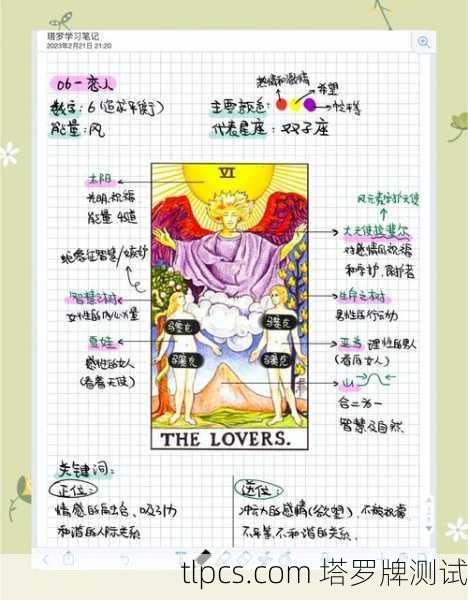 塔罗学习笔记
2023年2月21日 21:20
06-恋人
数字:6(追求平衡)
能量:风
热情和激情
希望
主要颜色:
性平等
代表星座:双子座
太阳
光明.祝福
能量.创造
蛇象征智慧/嫉妒
智慧之树
女性的内心力量
夏娃
感性的女人
(看着天使)
VI
马赛克
马赛克
马赛克
马赛克
THE LOVERS.
风元素守护天使
大天使拉斐尔
对感情的祝福
和守护,保护者
生命之树
男性的行动力
亚当 理性的男人
(看向女人)
山
合二为一
智慧及自然.
关键词:
正位:
情感的结合、吸引力
和谐的人际关系
逆位:
冲动的感情(欲望)不被祝福
不平等、不和谐的关系.
tlpcs.com 塔罗牌测试